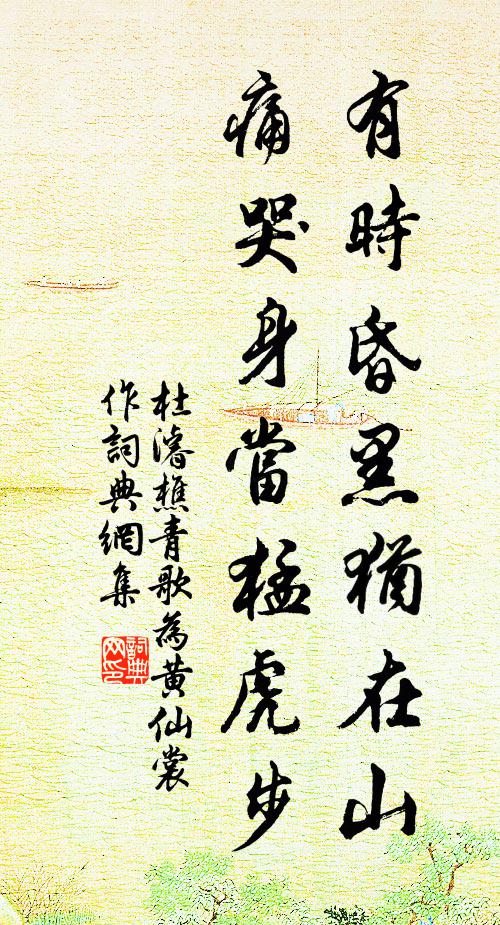 有時昏黑猶在山
痛哭身當猛虎步
杜濬樵青歌為黃仙裳
作詞典網集
詞典
网印